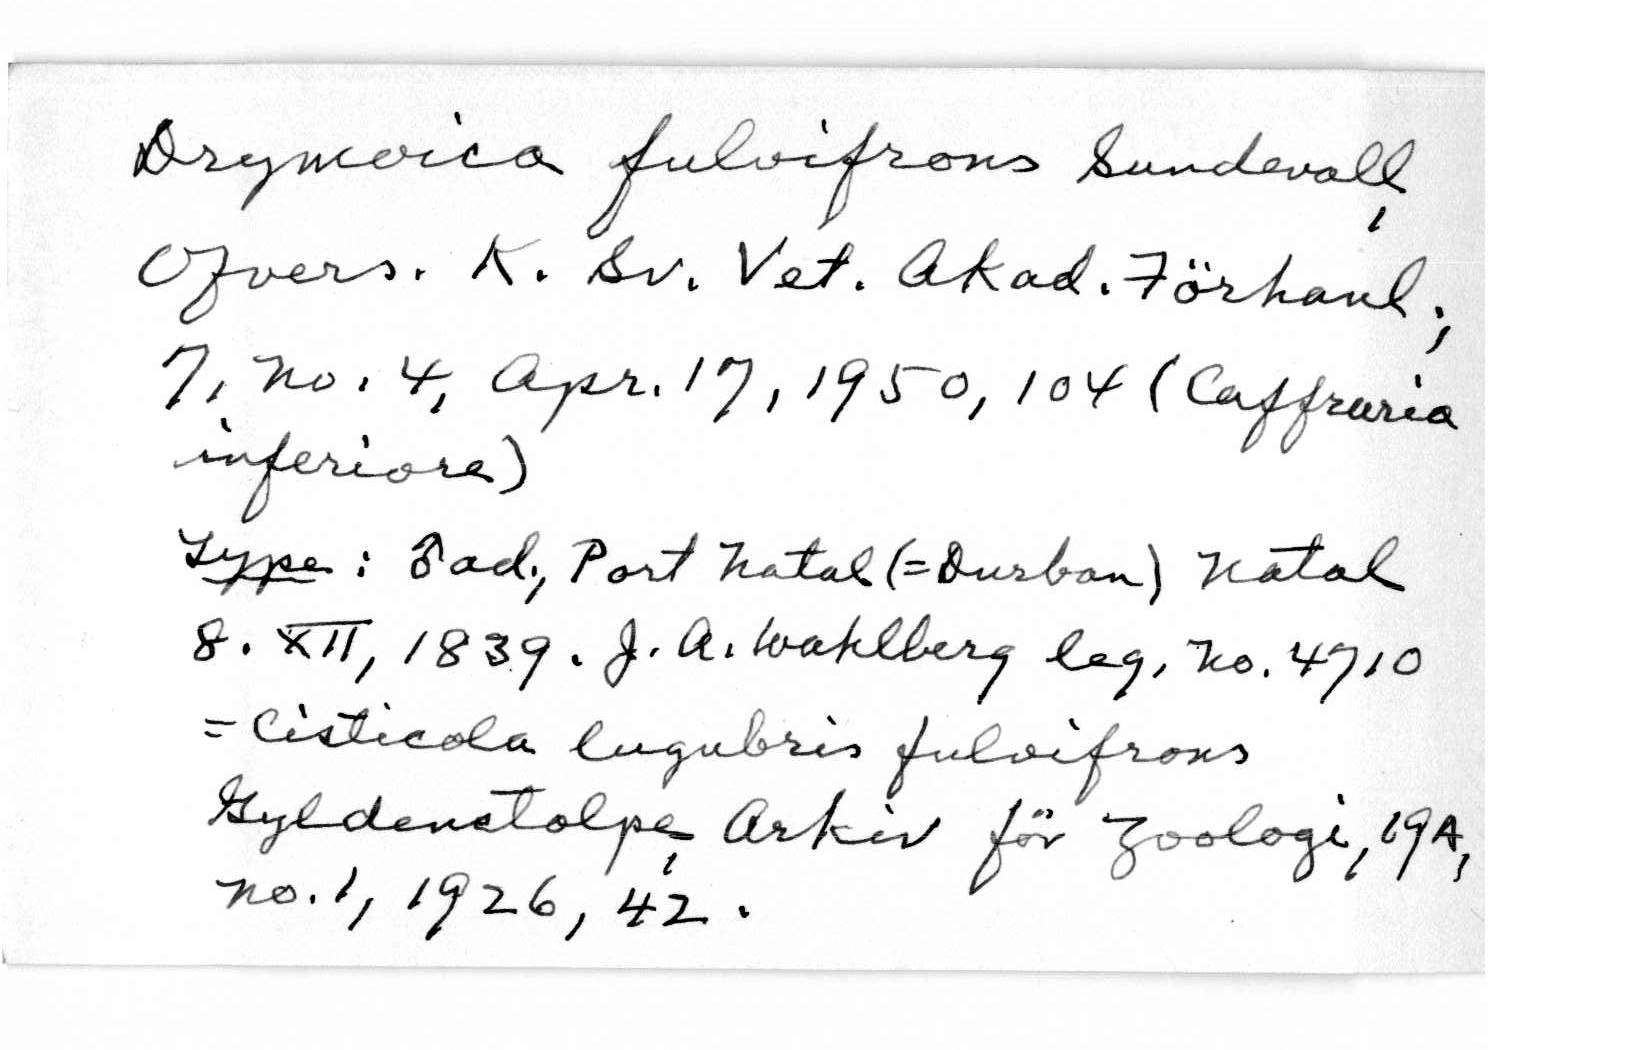 Drymoica fulvifrons Sundevall,
Ofvers. K. Sv. Vet. Akad. Förhanl.,
7, no. 4, Apr. 17, 1950, 104 (Caffraria
inferiore)
Type: ♂ ad., Port Natal (=Durban) Natal
8. XII, 1839. J. A. Wahlberg leg, No. 4710
= Cisticola lugubris fulvifrons
Gyldenstolpe, Arkiv för Zoologi, 19A,
no. 1, 1926, 42.